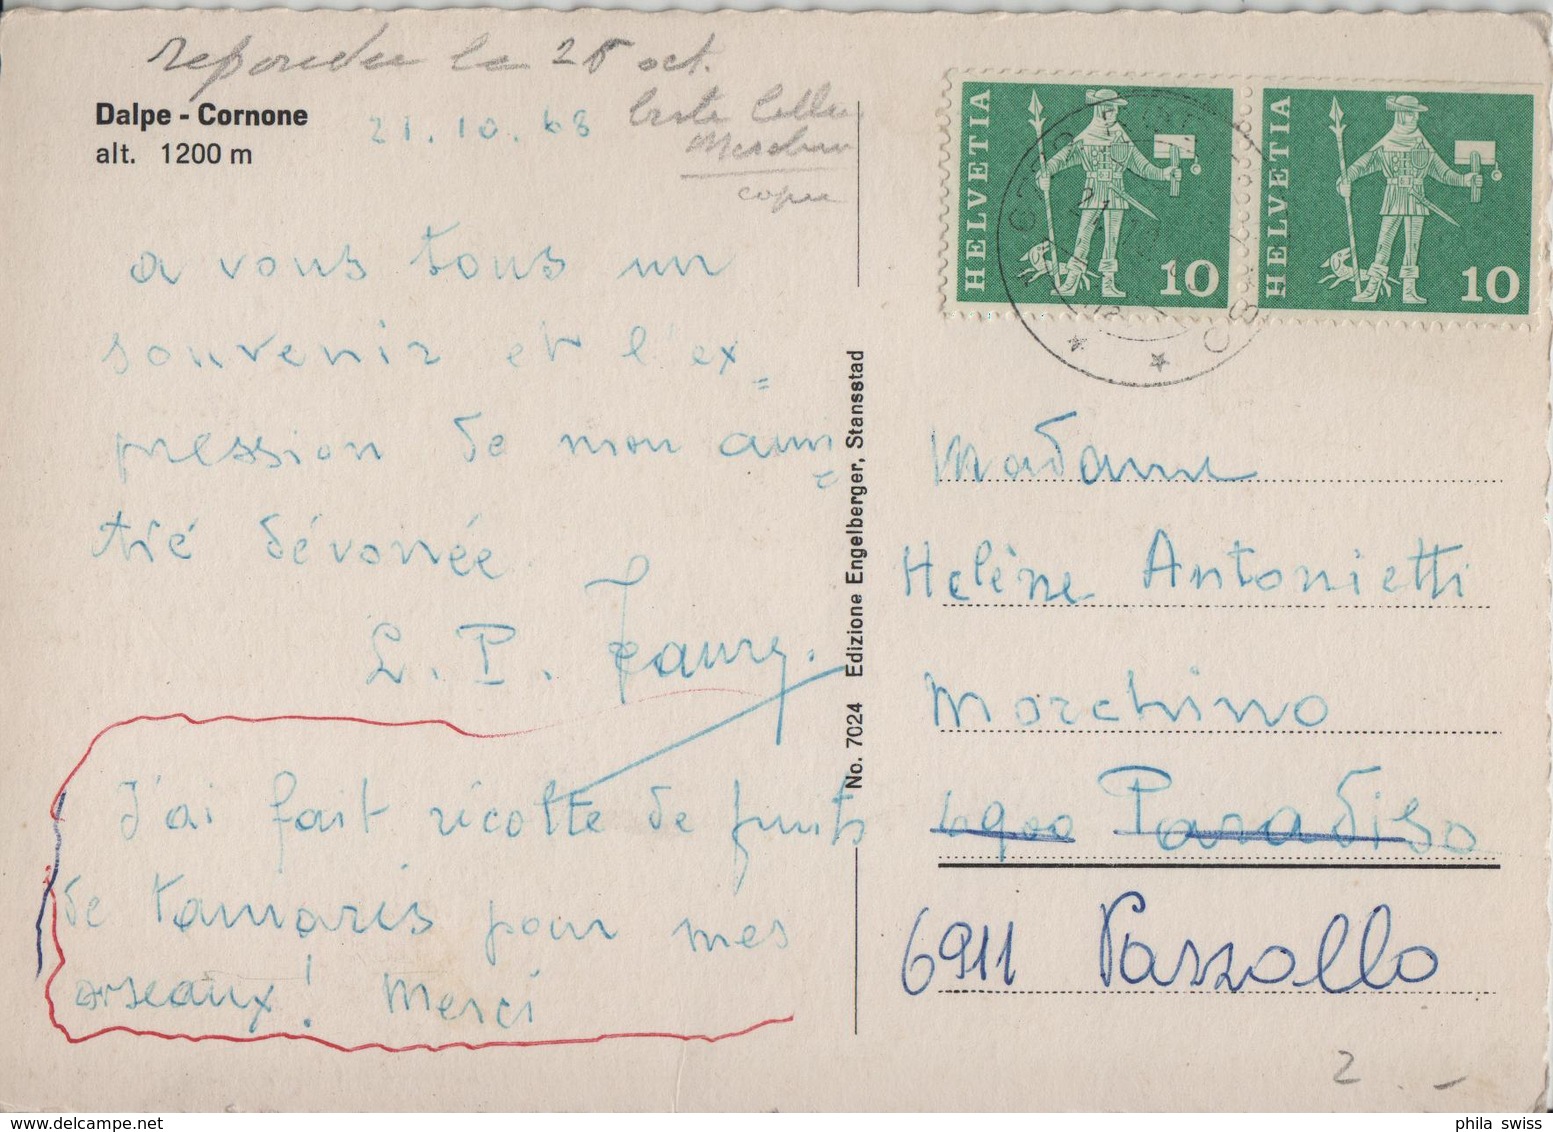 repondu le 25 oct.
Dalpe - Cornone
alt. 1200 m
21.10.68
carte
copie
a vous tous un
souvenir et l'ex=
pression de mon ami=
tié dévouée
L. P.
J'ai fait récolte de fruits
de tamaris pour mes
oiseaux! Merci
No. 7024 Edizione Engelberger, Stansstad
HELVETIA 10
HELVETIA 10
21.10
Madame
Helène Antonietti
Morchino
6900 Paradiso
6911 Pazzollo
2.-
phila swiss